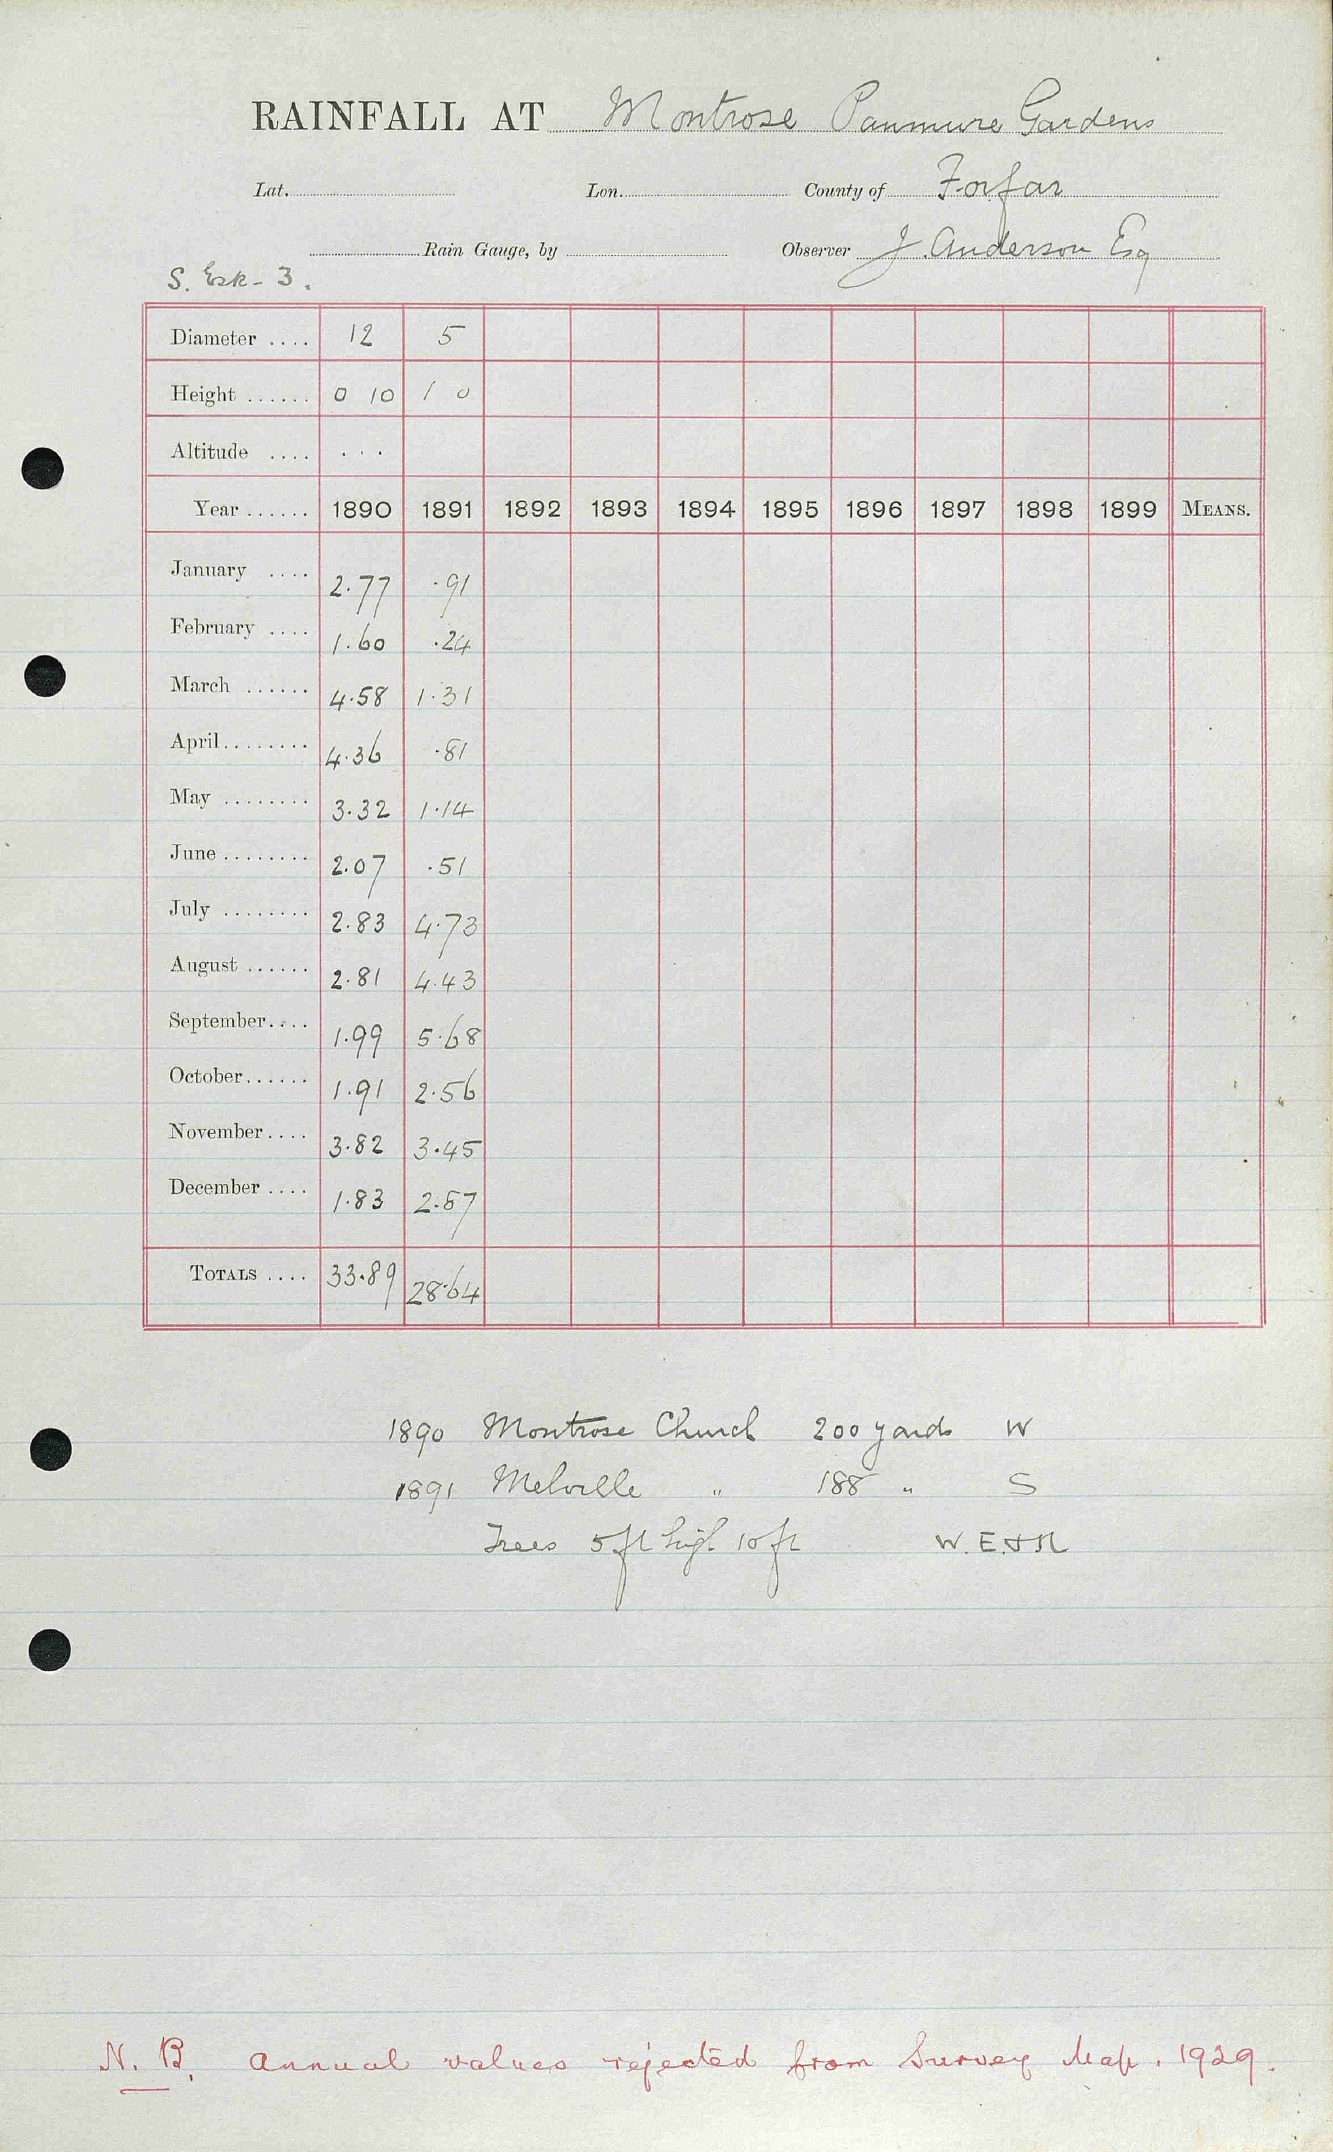 RAINFALL AT Montrose Panmure Gardens
Lat. Lon. County of Forfar
Rain Gauge, by Observer J. Anderson Esq
S. Esk - 3.
Diameter .... 12 5
Height ...... 0 10 1 0
Altitude .... ...
Year ...... 1890 1891 1892 1893 1894 1895 1896 1897 1898 1899 MEANS.
January .... 2.77 .91
February .... 1.60 .24
March ...... 4.58 1.31
April........ 4.36 .81
May ........ 3.32 1.14
June ........ 2.07 .51
July ........ 2.83 4.73
August ...... 2.81 4.43
September.... 1.99 5.68
October...... 1.91 2.56
November.... 3.82 3.45
December .... 1.83 2.87
TOTALS .... 33.89 28.64
1890 Montrose Church 200 yards W
1891 Melville " 188 " S
Trees 5 ft high 10 ft W. E. & N
N. B. Annual values rejected from Survey Map. 1929.